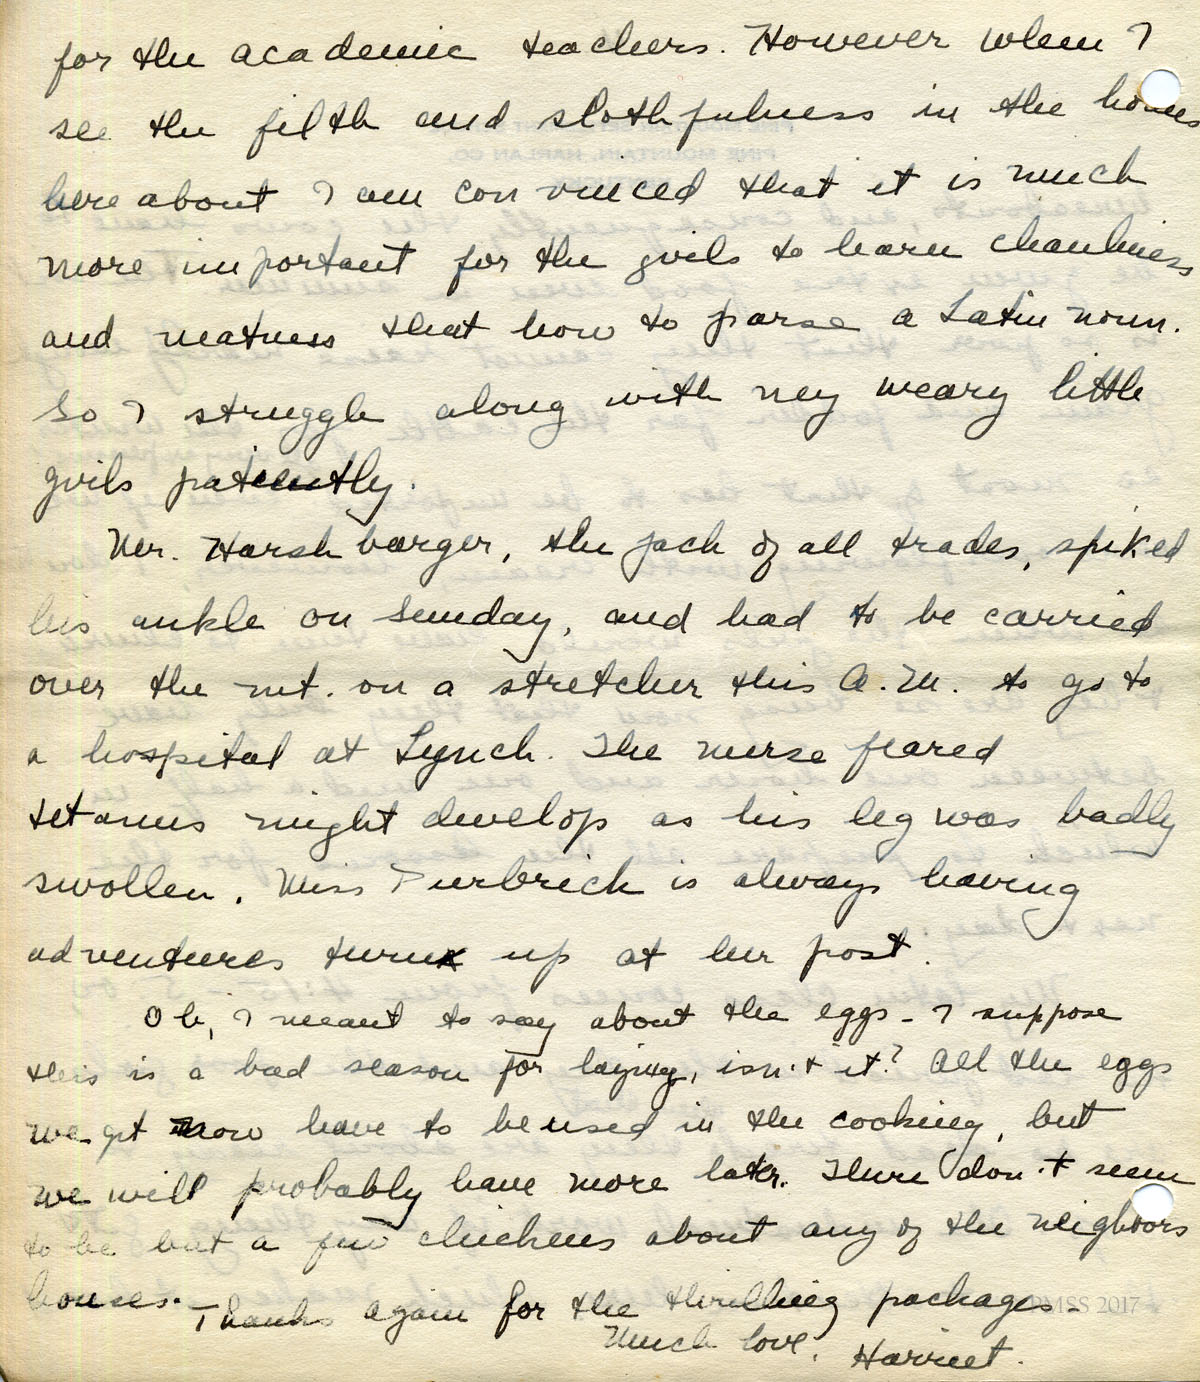 for the academic teachers. However when I
see the filth and slothfulness in the homes
here about I am convinced that it is much
more important for the girls to learn cleanliness
and neatness that how to parse a Latin noun.
So I struggle along with my weary little
girls patiently.
Mr. Harshbarger, the jack of all trades, spiked
his ankle on Sunday, and had to be carried
over the mt. on a stretcher this A.M. to go to
a hospital at Lynch. The nurse feared
tetanus might develop as his leg was badly
swollen. Miss Purbrick is always having
adventures turn up at her post.
Oh, I meant to say about the eggs - I suppose
this is a bad season for laying, isn't it? All the eggs
we get now have to be used in the cooking, but
we will probably have more later. There don't seem
to be but a few chickens about any of the neighbors
houses.
Thanks again for the thrilling packages -
Much love,
Harriet.
PMSS 2017